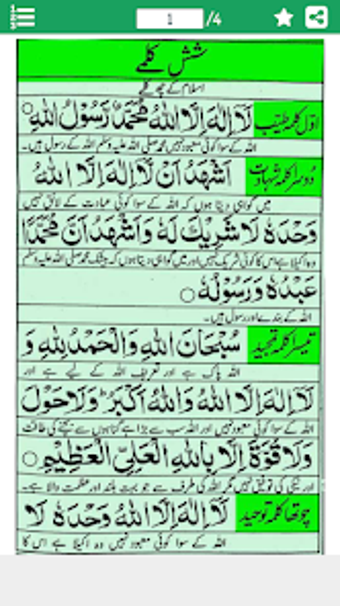 1 /4
شش کلمے
اسلام کے چھ کلمے
اوّل کلمہ طیّب لَآ اِلٰهَ اِلَّا اللهُ مُحَمَّدٌ رَّسُوْلُ اللهِ ○
اللہ کے سوا کوئی معبود نہیں محمد صلی اللہ علیہ وسلم اللہ کے رسول ہیں۔
دُوسرا کلمہ شہادت اَشْهَدُ اَنْ لَّآ اِلٰهَ اِلَّا اللهُ
میں گواہی دیتا ہوں کہ اللہ کے سوا کوئی عبادت کے لائق نہیں
وَحْدَهٗ لَا شَرِيْكَ لَهٗ وَاَشْهَدُ اَنَّ مُحَمَّدًا
وہ اکیلا ہے اس کا کوئی شریک نہیں اور میں گواہی دیتا ہوں کہ بیشک محمد صلی اللہ علیہ وسلم
عَبْدُهٗ وَرَسُوْلُهٗ ○
اللہ کے بندے اور رسول ہیں۔
تیسرا کلمہ تمجید سُبْحَانَ اللهِ وَالْحَمْدُ لِلّٰهِ وَ
اللہ پاک ہے اور تعریف اللہ کے لیے ہے اور
لَآ اِلٰهَ اِلَّا اللهُ وَاللهُ اَكْبَرُ ؕ وَلَا حَوْلَ
اللہ کے سوا کوئی معبود نہیں اور اللہ سب سے بڑا ہے گناہوں سے بچنے کی طاقت
وَلَا قُوَّةَ اِلَّا بِاللهِ الْعَلِيِّ الْعَظِيْمِ ○
اور نیکی کی توفیق نہیں مگر اللہ کی طرف سے جو بہت بلند اور عظمت والا ہے۔
چوتھا کلمہ توحید لَآ اِلٰهَ اِلَّا اللهُ وَحْدَهٗ لَا
اللہ کے سوا کوئی معبود نہیں وہ اکیلا ہے اس کا